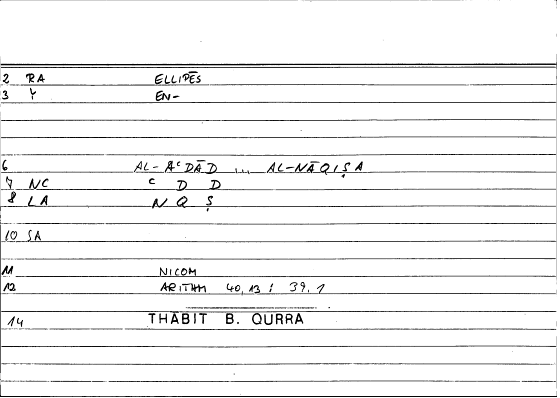 2 RA ELLIPĒS
3 Y EN-
6 AL-AᶜDĀD ... AL-NĀQIṢA
7 NC ᶜ D D
8 LA N Q Ṣ
10 SA
11 NICOM
12 ARITHM 40,13 : 39,1
14 THĀBIT B. QURRA